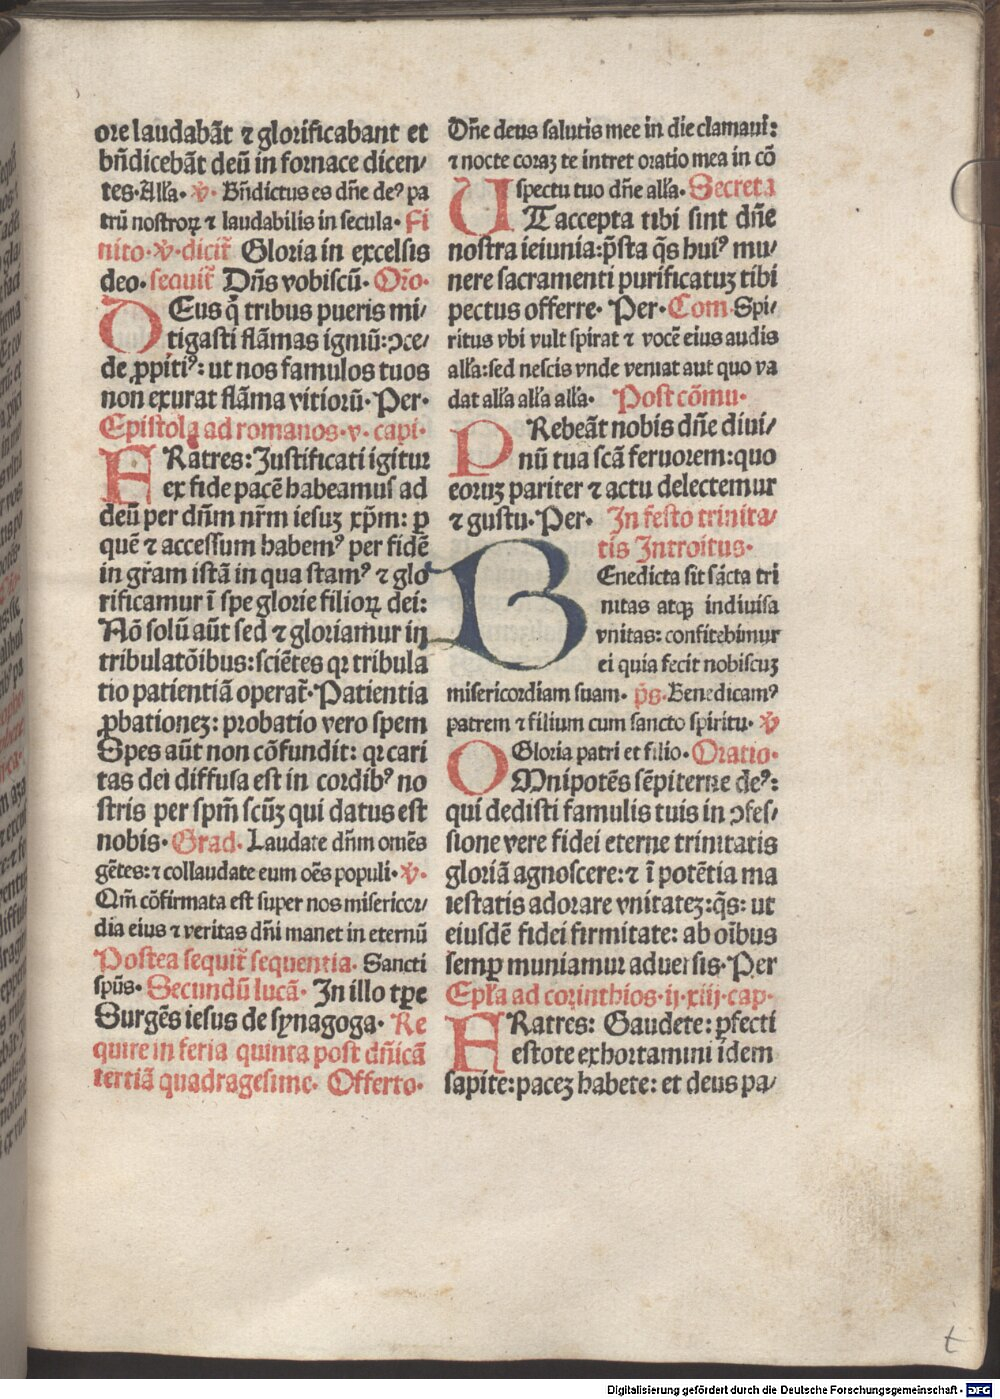 ore laudabãt ⁊ glorificabant et
bñdicebãt deũ in fornace dicen/
tes. Alla. ℣. Bñdictus es dñe deꝰ pa
trũ nostroꝝ ⁊ laudabilis in secula. Fi
nito. ℣. dicit̃ Gloria in excelsis
deo. sequit̃ Dñs vobiscũ. Oro.
DEus q̃ tribus pueris mi/
tigasti flãmas igniũ: ↄce/
de ꝓpitiꝰ: ut nos famulos tuos
non exurat flãma vitiorũ. Per.
Epistola ad romanos. v. capi.
FRatres: Justificati igitur
ex fide pacẽ habeamus ad
deũ per dñm nr̃m iesuȝ xp̃m: ꝑ
quẽ ⁊ accessum habemꝰ per fidẽ
in gr̃am istã in qua stamꝰ ⁊ glo
rificamur ĩ spe glorie filioꝝ dei:
Nõ solũ aũt sed ⁊ gloriamur in
tribulatõibus: sciẽtes qꝛ tribula
tio patientiã operat̃. Patientia
ꝓbationeȝ: probatio vero spem
Spes aũt non cõfundit: qꝛ cari
tas dei diffusa est in cordibꝰ no
stris per sp̃m scũȝ qui datus est
nobis. Grad. Laudate dñm omẽs
gẽtes: ⁊ collaudate eum oẽs populi. ℣.
Qm̃ cõfirmata est super nos misericor/
dia eius ⁊ veritas dñi manet in eternũ
Postea sequit̃ sequentia. Sancti
sp̃us. Secundũ lucã. In illo tꝑe
Surgẽs iesus de synagoga. Re
quire in feria quinta post dñicã
tertiã quadragesime. Offerto.
Dñe deus salutis mee in die clamaui:
⁊ nocte coraȝ te intret oratio mea in cõ
spectu tuo dñe alla. Secreta
UT accepta tibi sint dñe
nostra ieiunia: p̃sta q̃s huiꝰ mu/
nere sacramenti purificatuȝ tibi
pectus offerre. Per. Com. Spi/
ritus vbi vult spirat ⁊ vocẽ eius audis
alla: sed nescis vnde veniat aut quo va
dat alla alla alla. Post cõmu.
PRebeãt nobis dñe diui/
nũ tua scã feruorem: quo
eoruȝ pariter ⁊ actu delectemur
⁊ gustu. Per. In festo trinita/
tis Introitus.
BEnedicta sit sãcta tri
nitas atqꝫ indiuisa
vnitas: confitebimur
ei quia fecit nobiscuȝ
misericordiam suam. p̃s. Benedicamꝰ
patrem ⁊ filium cum sancto spiritu. ℣
Gloria patri et filio. Oratio.
OMnipotẽs sẽpiterne deꝰ:
qui dedisti famulis tuis in ↄfes/
sione vere fidei eterne trinitatis
gloriã agnoscere: ⁊ ĩ potẽtia ma
iestatis adorare vnitateȝ: q̃s: ut
eiusdẽ fidei firmitate: ab oĩbus
semꝑ muniamur aduersis. Per
Epl̃a ad corinthios. ij. xiij. cap.
FRatres: Gaudete: ꝑfecti
estote exhortamini idem
sapite: paceȝ habete: et deus pa/
t
Digitalisierung gefördert durch die Deutsche Forschungsgemeinschaft - DFG